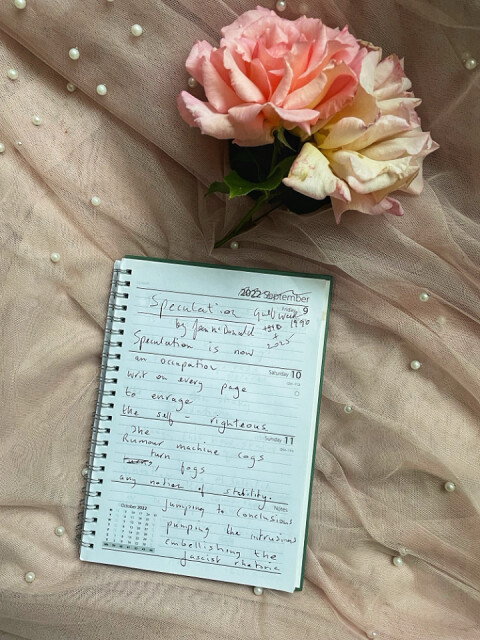 2022 September
Friday 9
Speculation Gulf War 1990
by Jean McDonald +
2025
Speculation is now
Saturday 10
an occupation
writ on every page
to enrage
the self-righteous
Sunday 11
The
Rumour machine cogs
turn
, fogs
any notion of stability.
Notes
Jumping to conclusions
pumping the intrusions
embellishing the
fascist rhetoric
October 2022